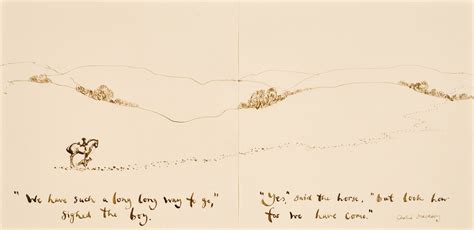 "We have such a long long way to go,"
sighed the boy.
"Yes," said the horse, "but look how
far we have come."
Charlie Mackesy